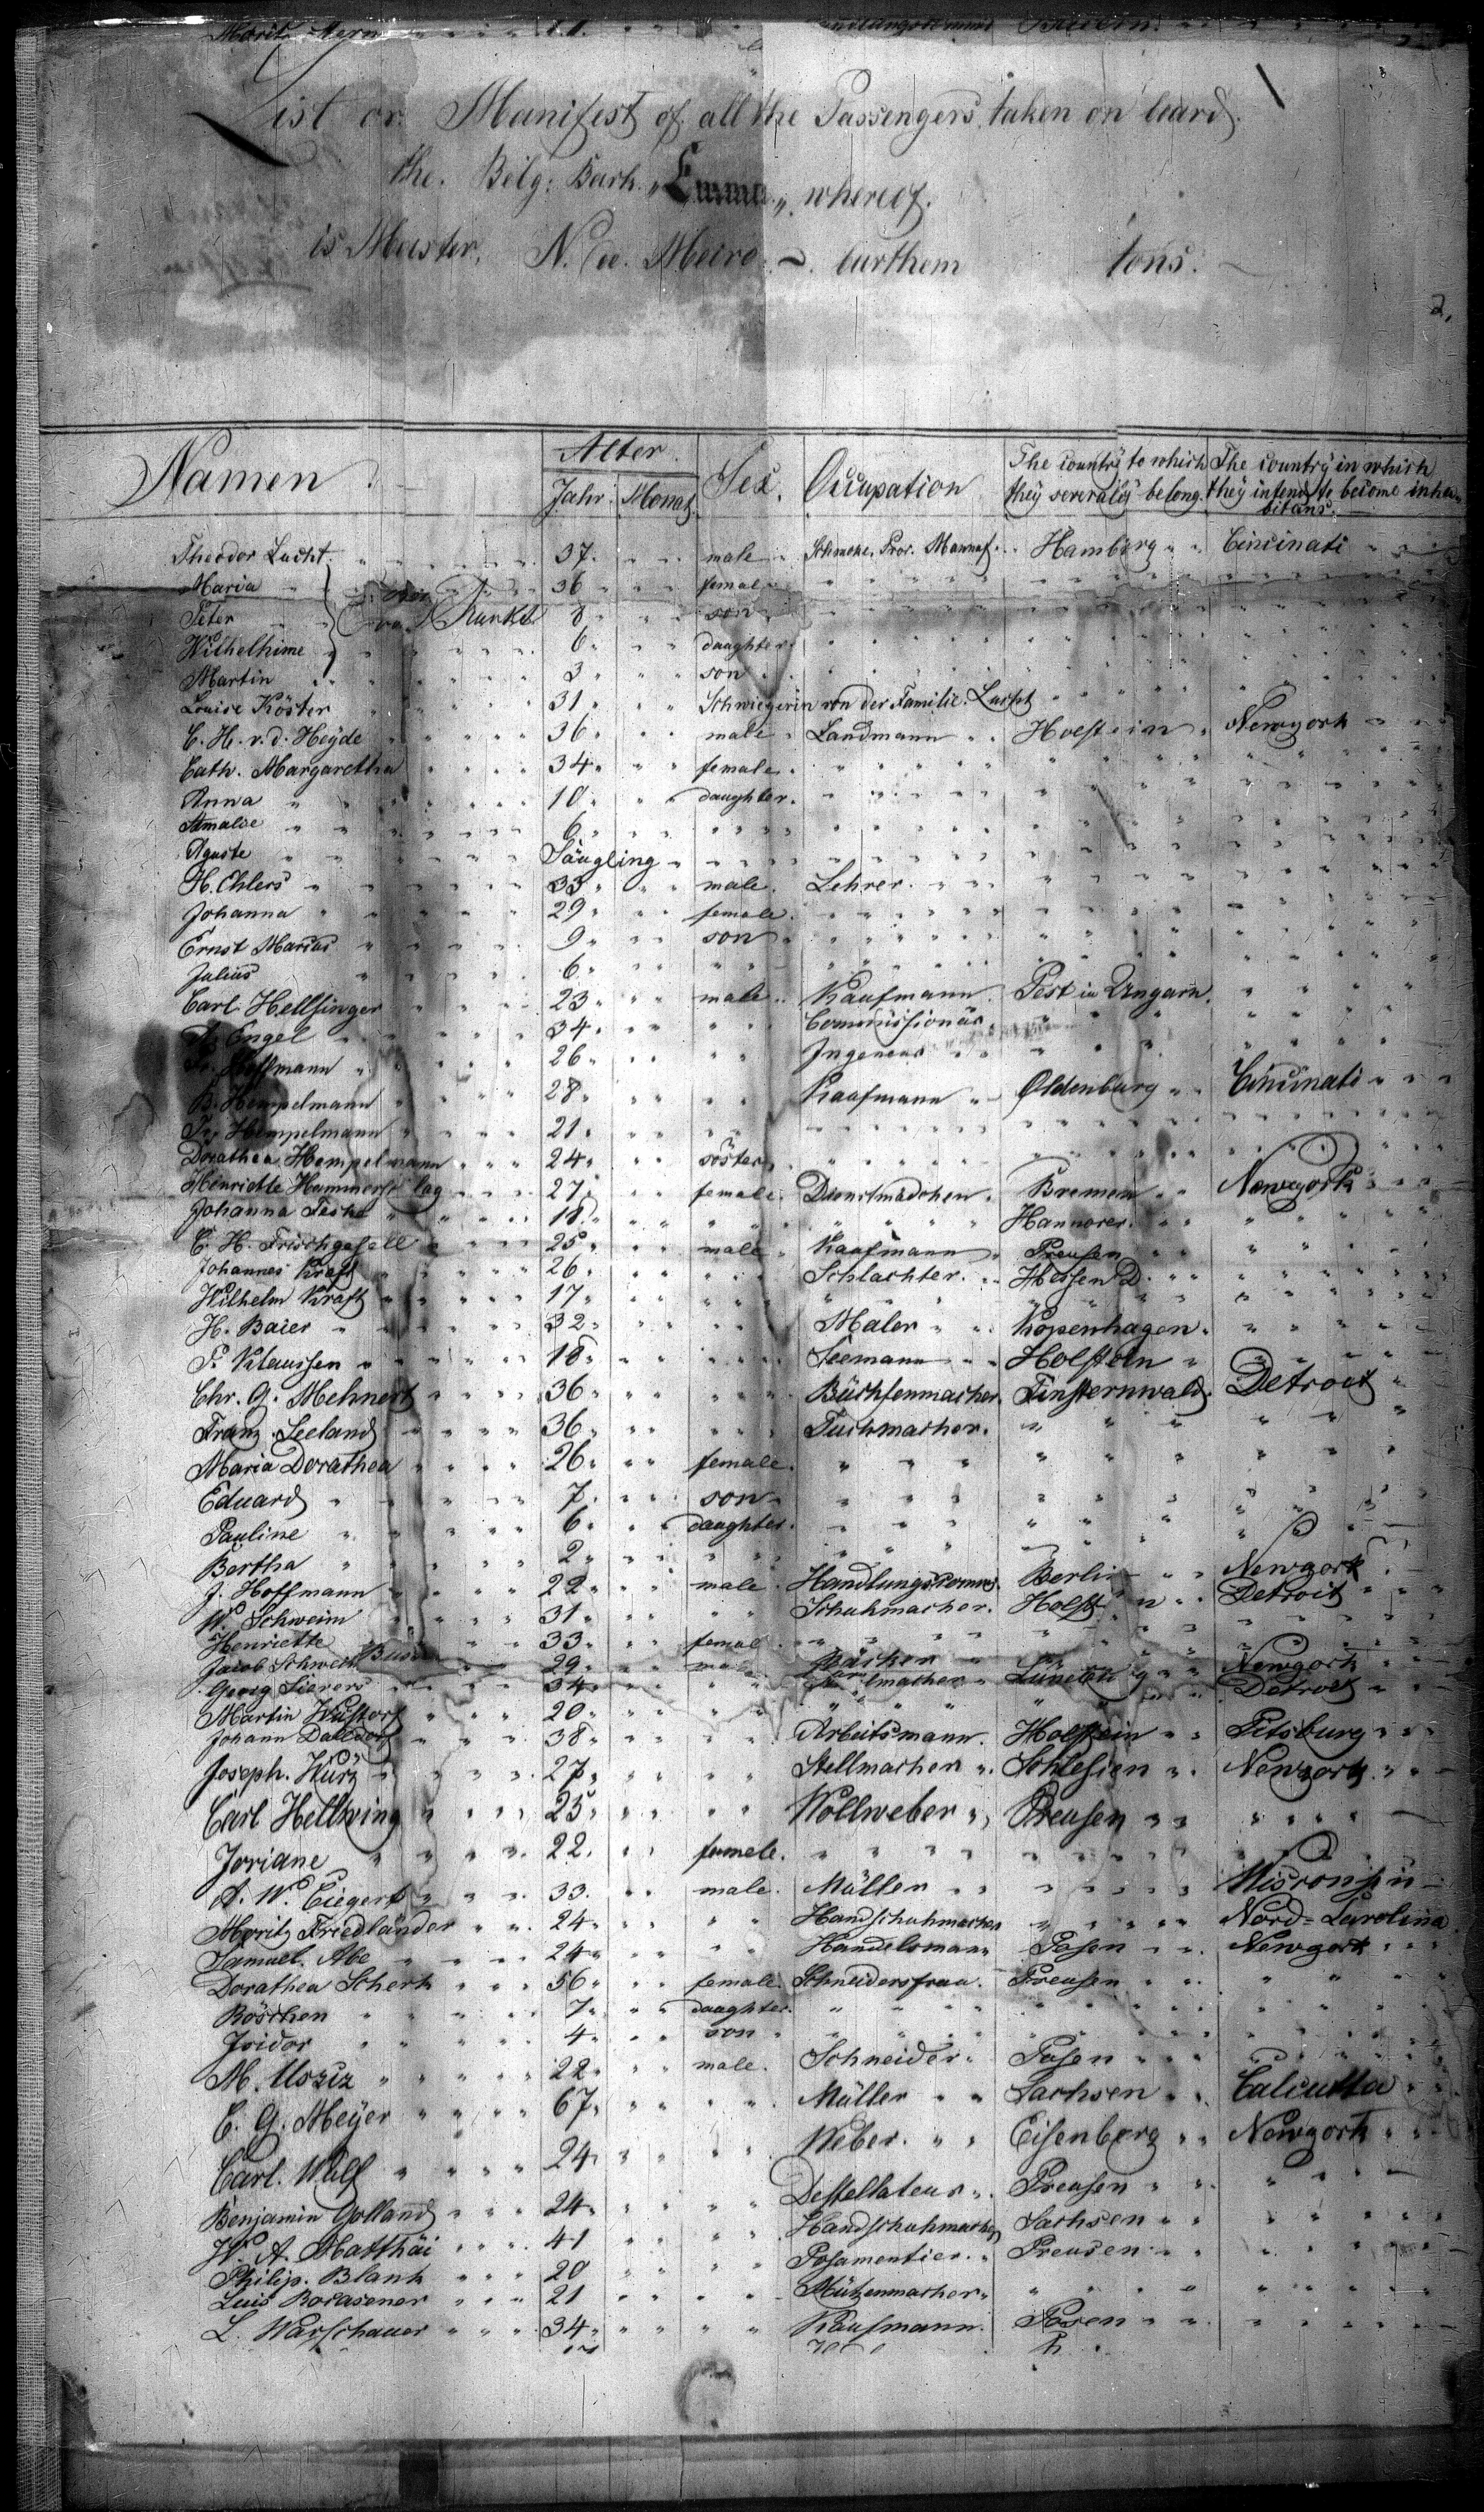 Moritz Stern " " " " " " Bredin.
List or Manifest of all the Passengers taken on board
the Belg: Bark "Emma" whereof
is Master, N. burthem tons.
2.
Namen Alter Sex. Occupation The country to which The country in which
Jahr. Monat. they severaly belong. they intend to become inha-
bitans.
Theodor Lucht. " " 37. " " male Mannuf. Hamburg " " Cincinati " "
Maria " " 36 " " femal " "
Peter " " 8 " " son " "
Wilhelhime " " 6. " " daughter. " "
Martin " " 3 " " son " "
Louise Köster " " 31 " " Schwiegerin von der Familie Lucht " "
C. H. v. d. Heyde " " 36 " " male " Landmann " " Holstein " Newyork " "
Cath. Margaretha " " 34 " " female. " "
Anna " " 10 " " daughter. " "
Amalie " " 6 " " " "
Aguste " " Säugling " " " "
H. Ehlers " " 33 " " male. Lehrer. " "
Johanna " " 29 " " female. " "
Ernst Marius " " 9 " " son " "
Julius " " 6. " " " "
Carl Hellsinger " " 23 " " male " Kaufmann. Pest in Ungarn. " "
A. Engel " " 34. " " " " Commissionär " "
Hoffmann " " 26 " " " " Ingeneur " "
B. Hempelmann " " 28 " " " " Kaufmann " Oldenburg " " Cincinati " "
Hempelmann " " 21. " " " "
Dorathea Hempelmann " " 24 " " söster " "
Henriette Hammerschlag " " 27 " " female. Dienstmädchen. Bremen " " Newyork " "
Johanna " " 18. " " " " Hannover. " "
C. H. Frischgesell " " 25 " " male " Kaufmann " Preusen " "
Johannes Kraft " " 26. " " " " Schlachter. " Hessen D. " "
Wilhelm Kraft " " 17 " " " "
H. Baier " " 32 " " " " Maler " " Kopenhagen. " "
P. Klaussen " " 18. " " " " Seemann " " Holstein " " "
Chr. G. Mehnert " " 36 " " " " Büchsenmacher. Finsternwald. Detroit "
Franz Seeland " " 36 " " " " Tuchmacher. " "
Maria Dorathea " " 26. " " female. " "
Eduard " " 7. " " son " "
Pauline " " 6. " " daughter. " "
Bertha " " 2 " " " "
J. Hoffmann " " 22 " " male. Handlungscomis. Berlin " " Newyork
W. Schweim " " 31 " " " " Schuhmacher. Holstein " Detroit " "
Henriette " " 33 " " femal " "
Jacob " " 29 " " male Bäcker " " Newyork " "
Georg Sievers " " 34. " " " " Lüneburg " " Detroit " "
Martin Wustorf " " 20 " " " "
Johann Dalldorf " " 38. " " " " Arbeitsmann. Holstein " " Pitsburg " "
Joseph. Würz " " 27. " " " " Stellmacher " Schlesien " " Newyork " "
Carl Hellwing " " 25. " " " " Wollweber " Preusen " "
Joriane " " 22. " " female. " "
A. W. Ciegert " " 33. " " male. Müller " " Wisconsin
Moritz Friedländer " " 24. " " " " Handschuhmacher " " Nord=Carolina
Samuel. Abe " " 24 " " " " Handelsmann Posen " " Newyork " "
Dorathea Scherk " " 56 " " female. Schneidersfrau. Preusen " "
Röschen " " 7. " " daughter. " "
Isidor " " 4. " " son " "
M. Usziz " " 22 " " male. Schneider " Posen " "
C. G. Meyer " " 67. " " " " Müller " " Sachsen " " Calcutta " "
Carl. Wulf " " 24. " " " " Weber. " " Eisenberg " " Newyork " "
Benjamin Golland " " 24. " " " " Destellateur " Preusen " "
W. A. Matthäi " " 41 " " " " Handschuhmacher Sachsen " "
Philip. Blank " " 20 " " " " Posamentier. " Preusen " "
Luis " " 21 " " " " Mützenmacher " "
L. Warschauer " " 34. " " " " Kaufmann. Posen " "